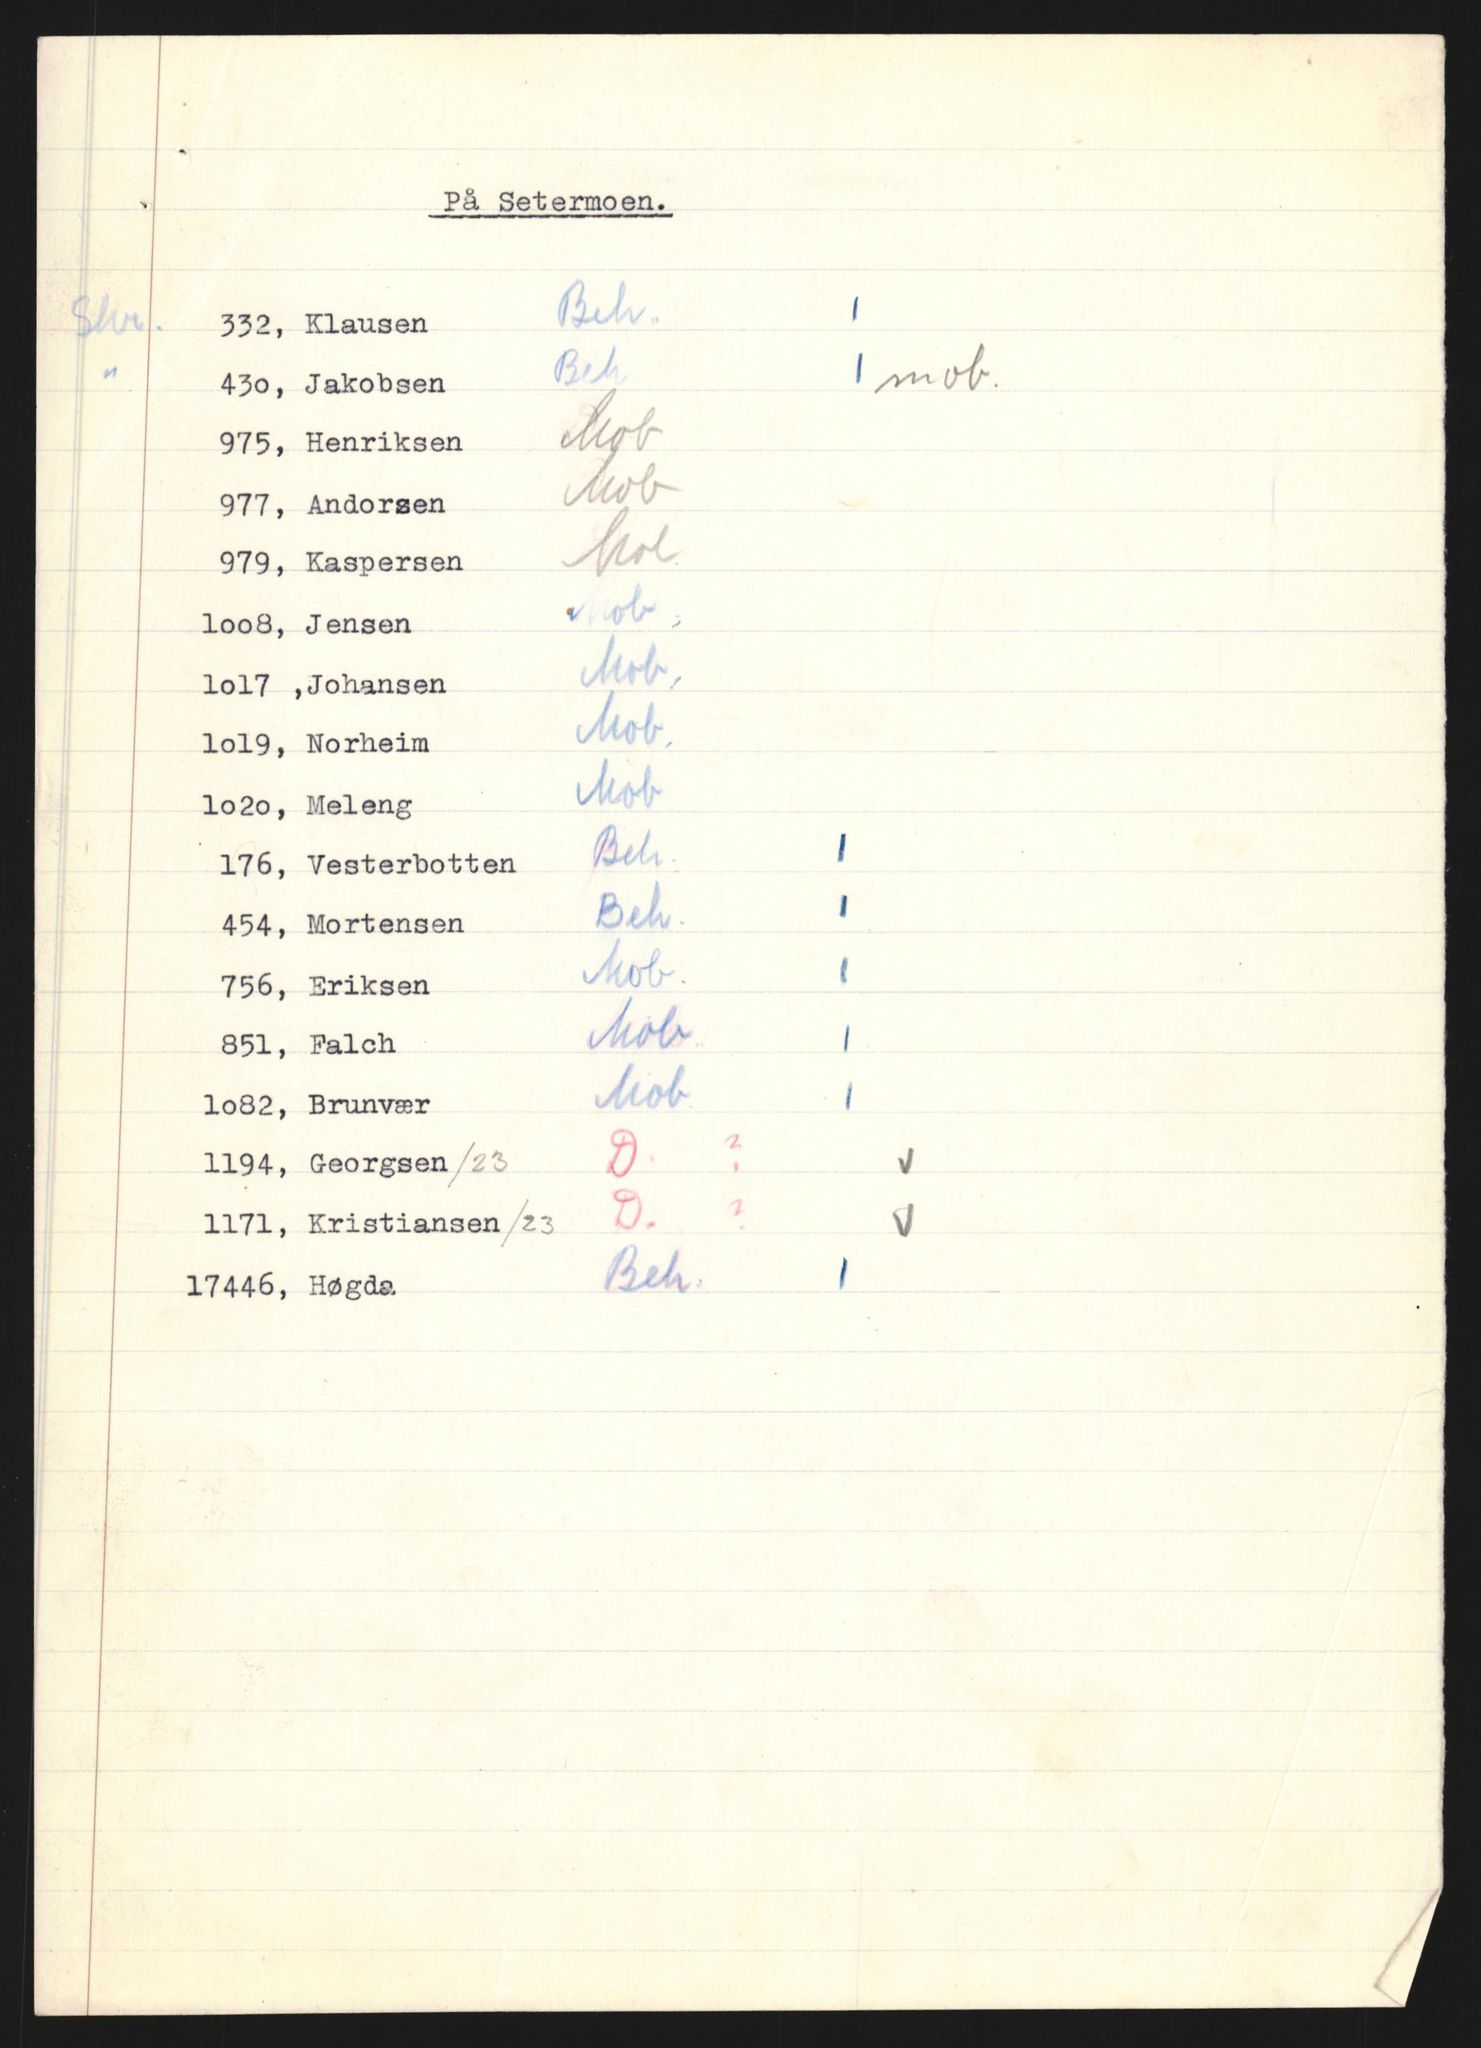 På Setermoen.
332, Klausen Beh. |
" 430, Jakobsen Beh | mob.
975, Henriksen Mob
977, Andorsen Mob
979, Kaspersen Mob
loo8, Jensen Mob.
lol7 ,Johansen Mob.
lol9, Norheim Mob.
lo2o, Meleng Mob
176, Vesterbotten Beh. |
454, Mortensen Beh. |
756, Eriksen Mob. |
851, Falch Mob. |
lo82, Brunvær Mob. |
1194, Georgsen /23 D. ? v
1171, Kristiansen /23 D. ? v
17446, Høgda Beh. |